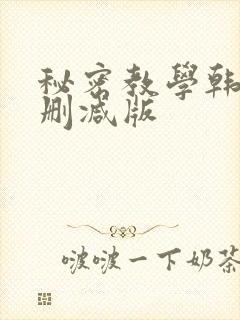 秘密教學韩
删减版
啵啵一下奶茶